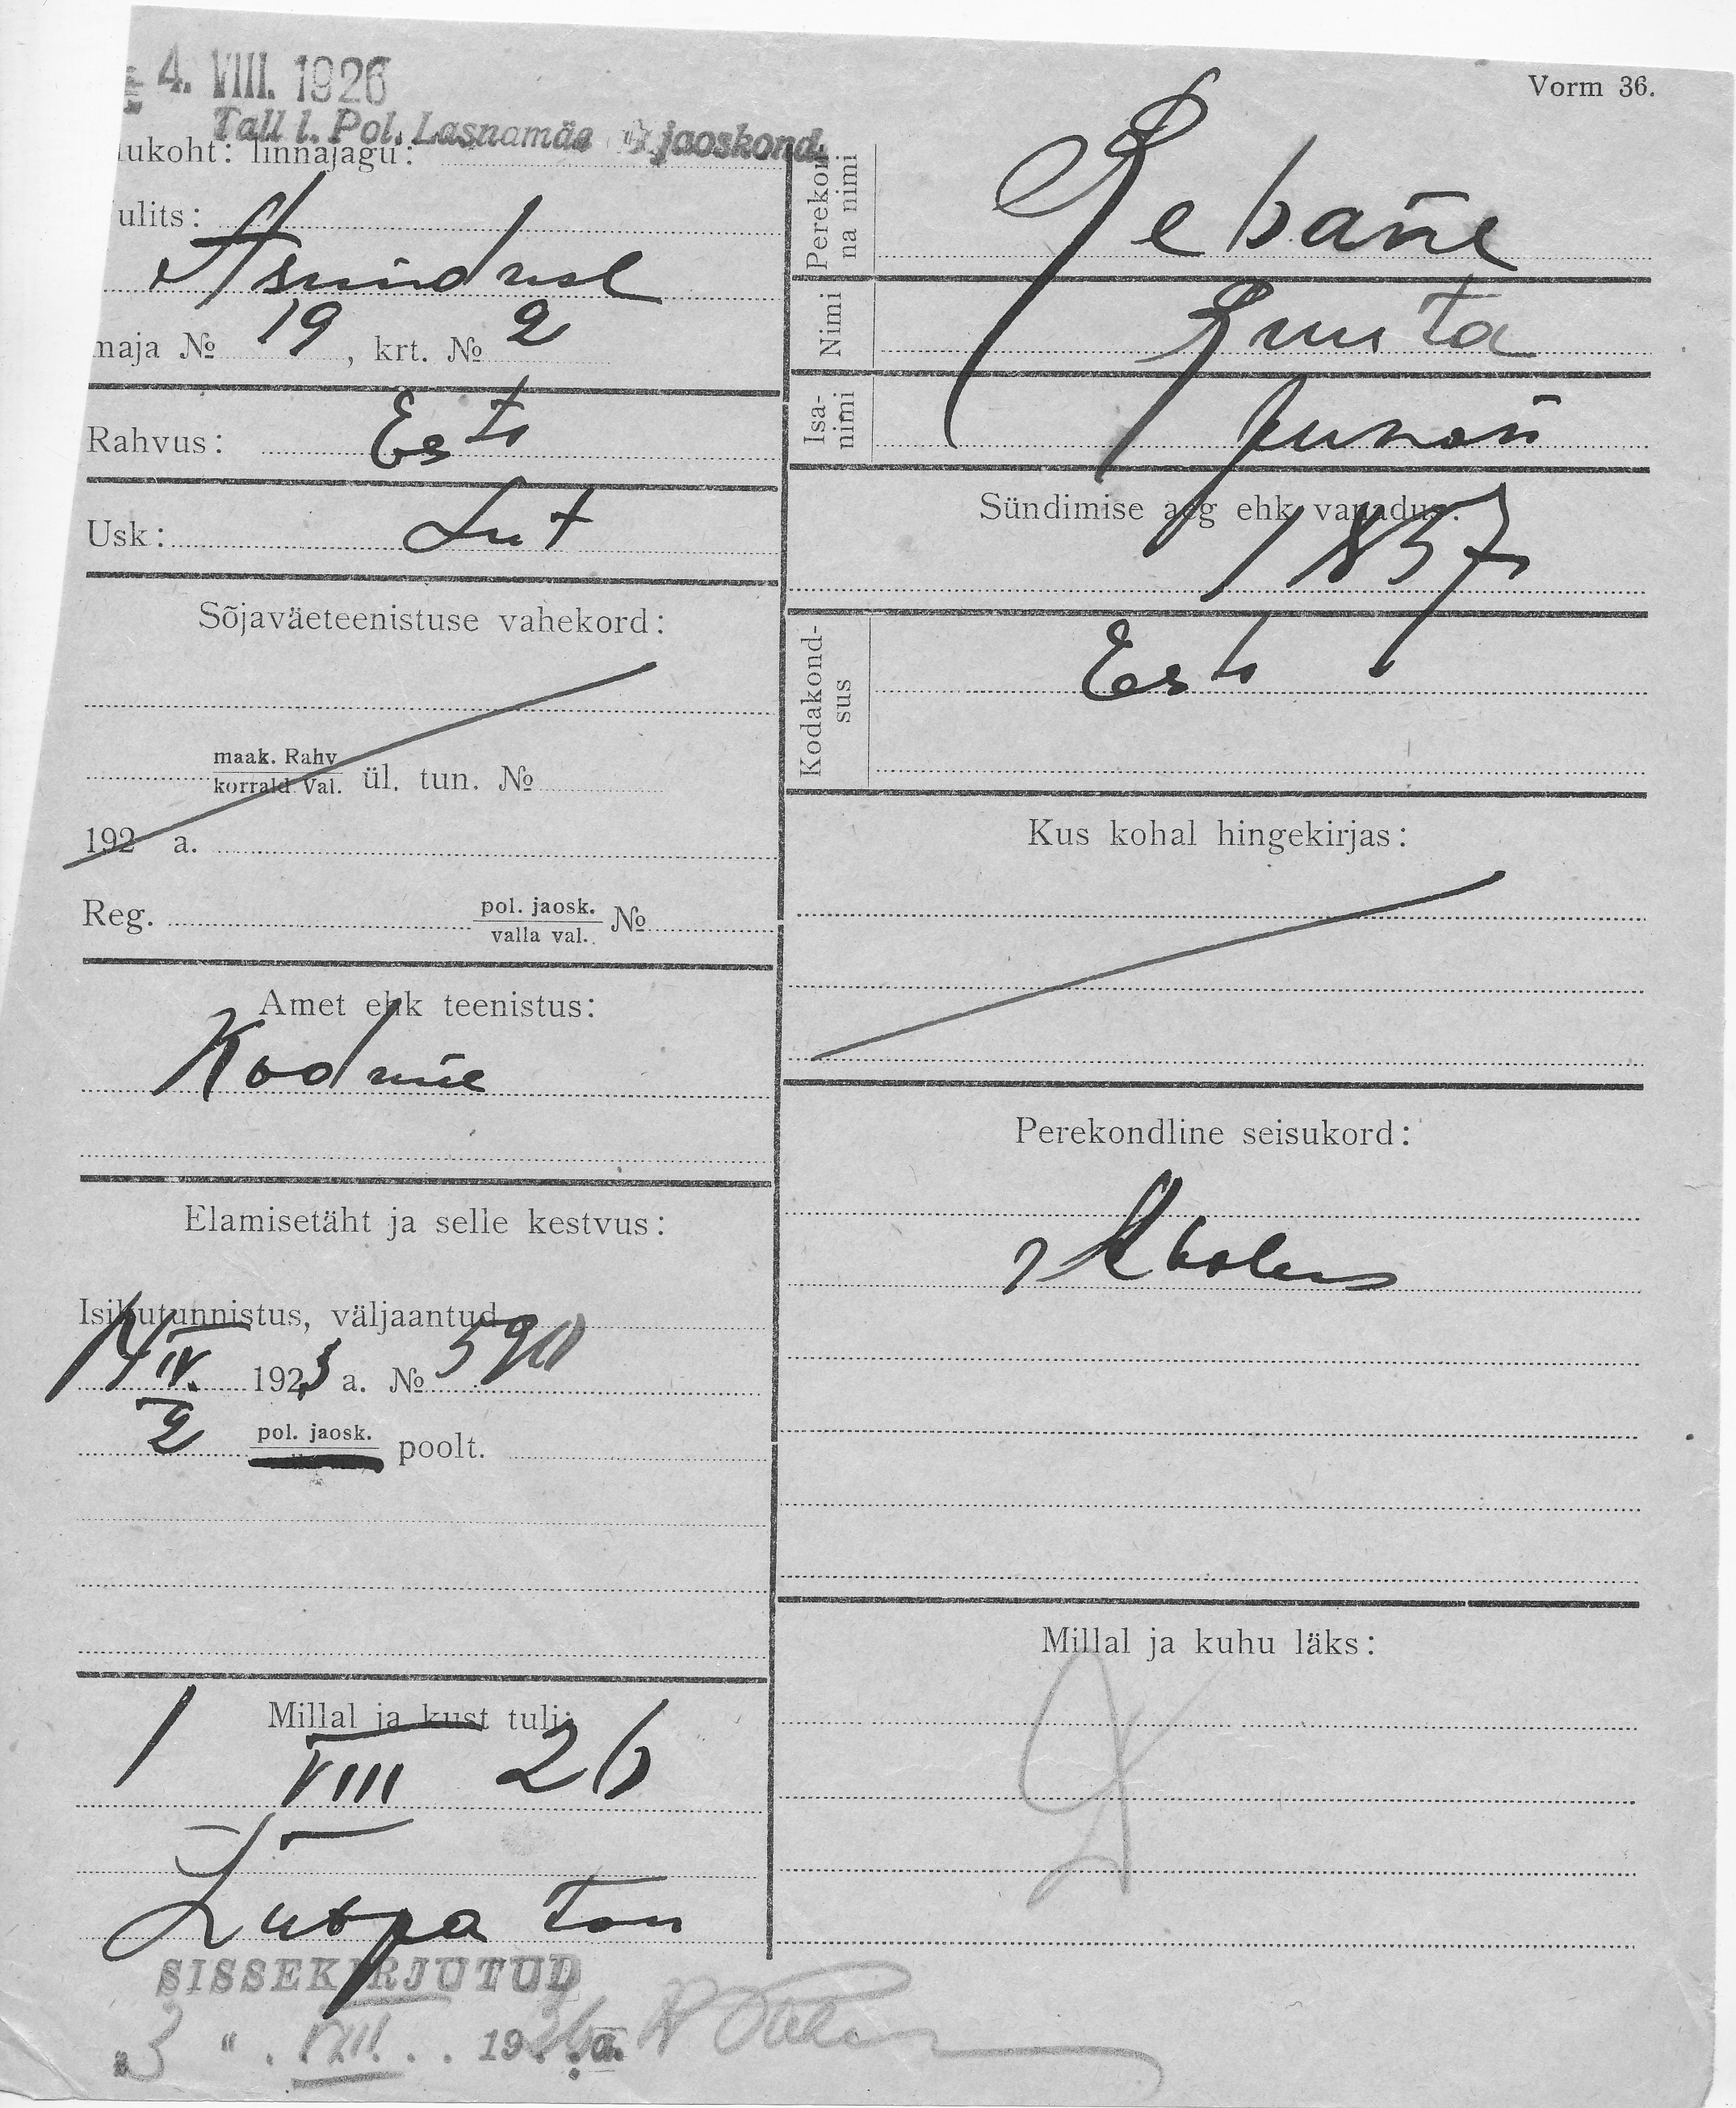 4. VIII. 1926
Vorm 36.
Tall l. Pol. Lasnamäe jaoskond.
ukoht: linnajagu:
ulits:
Asunduse
maja № 19, krt. № 2
Rahvus: Esti
Usk: Lut
Sõjaväeteenistuse vahekord:
maak. Rahv
korrald Val. ül. tun. №
192 a.
Reg. pol. jaosk.
valla val. №
Amet ehk teenistus:
Kodune
Elamisetäht ja selle kestvus:
Isikutunnistus, väljaantud
14 IV. 1923 a. № 590
2 pol. jaosk. poolt.
Millal ja kust tuli:
1 VIII 26
SISSEKIRJUTUD
" 3 " VIII. 1926 a.
Perekon
na nimi
Rebane
Nimi
Ruuta
Isa-
nimi
Juhan
Sündimise aeg ehk vanadus:
1857
Kodakond-
sus
Esti
Kus kohal hingekirjas:
Perekondline seisukord:
Millal ja kuhu läks: